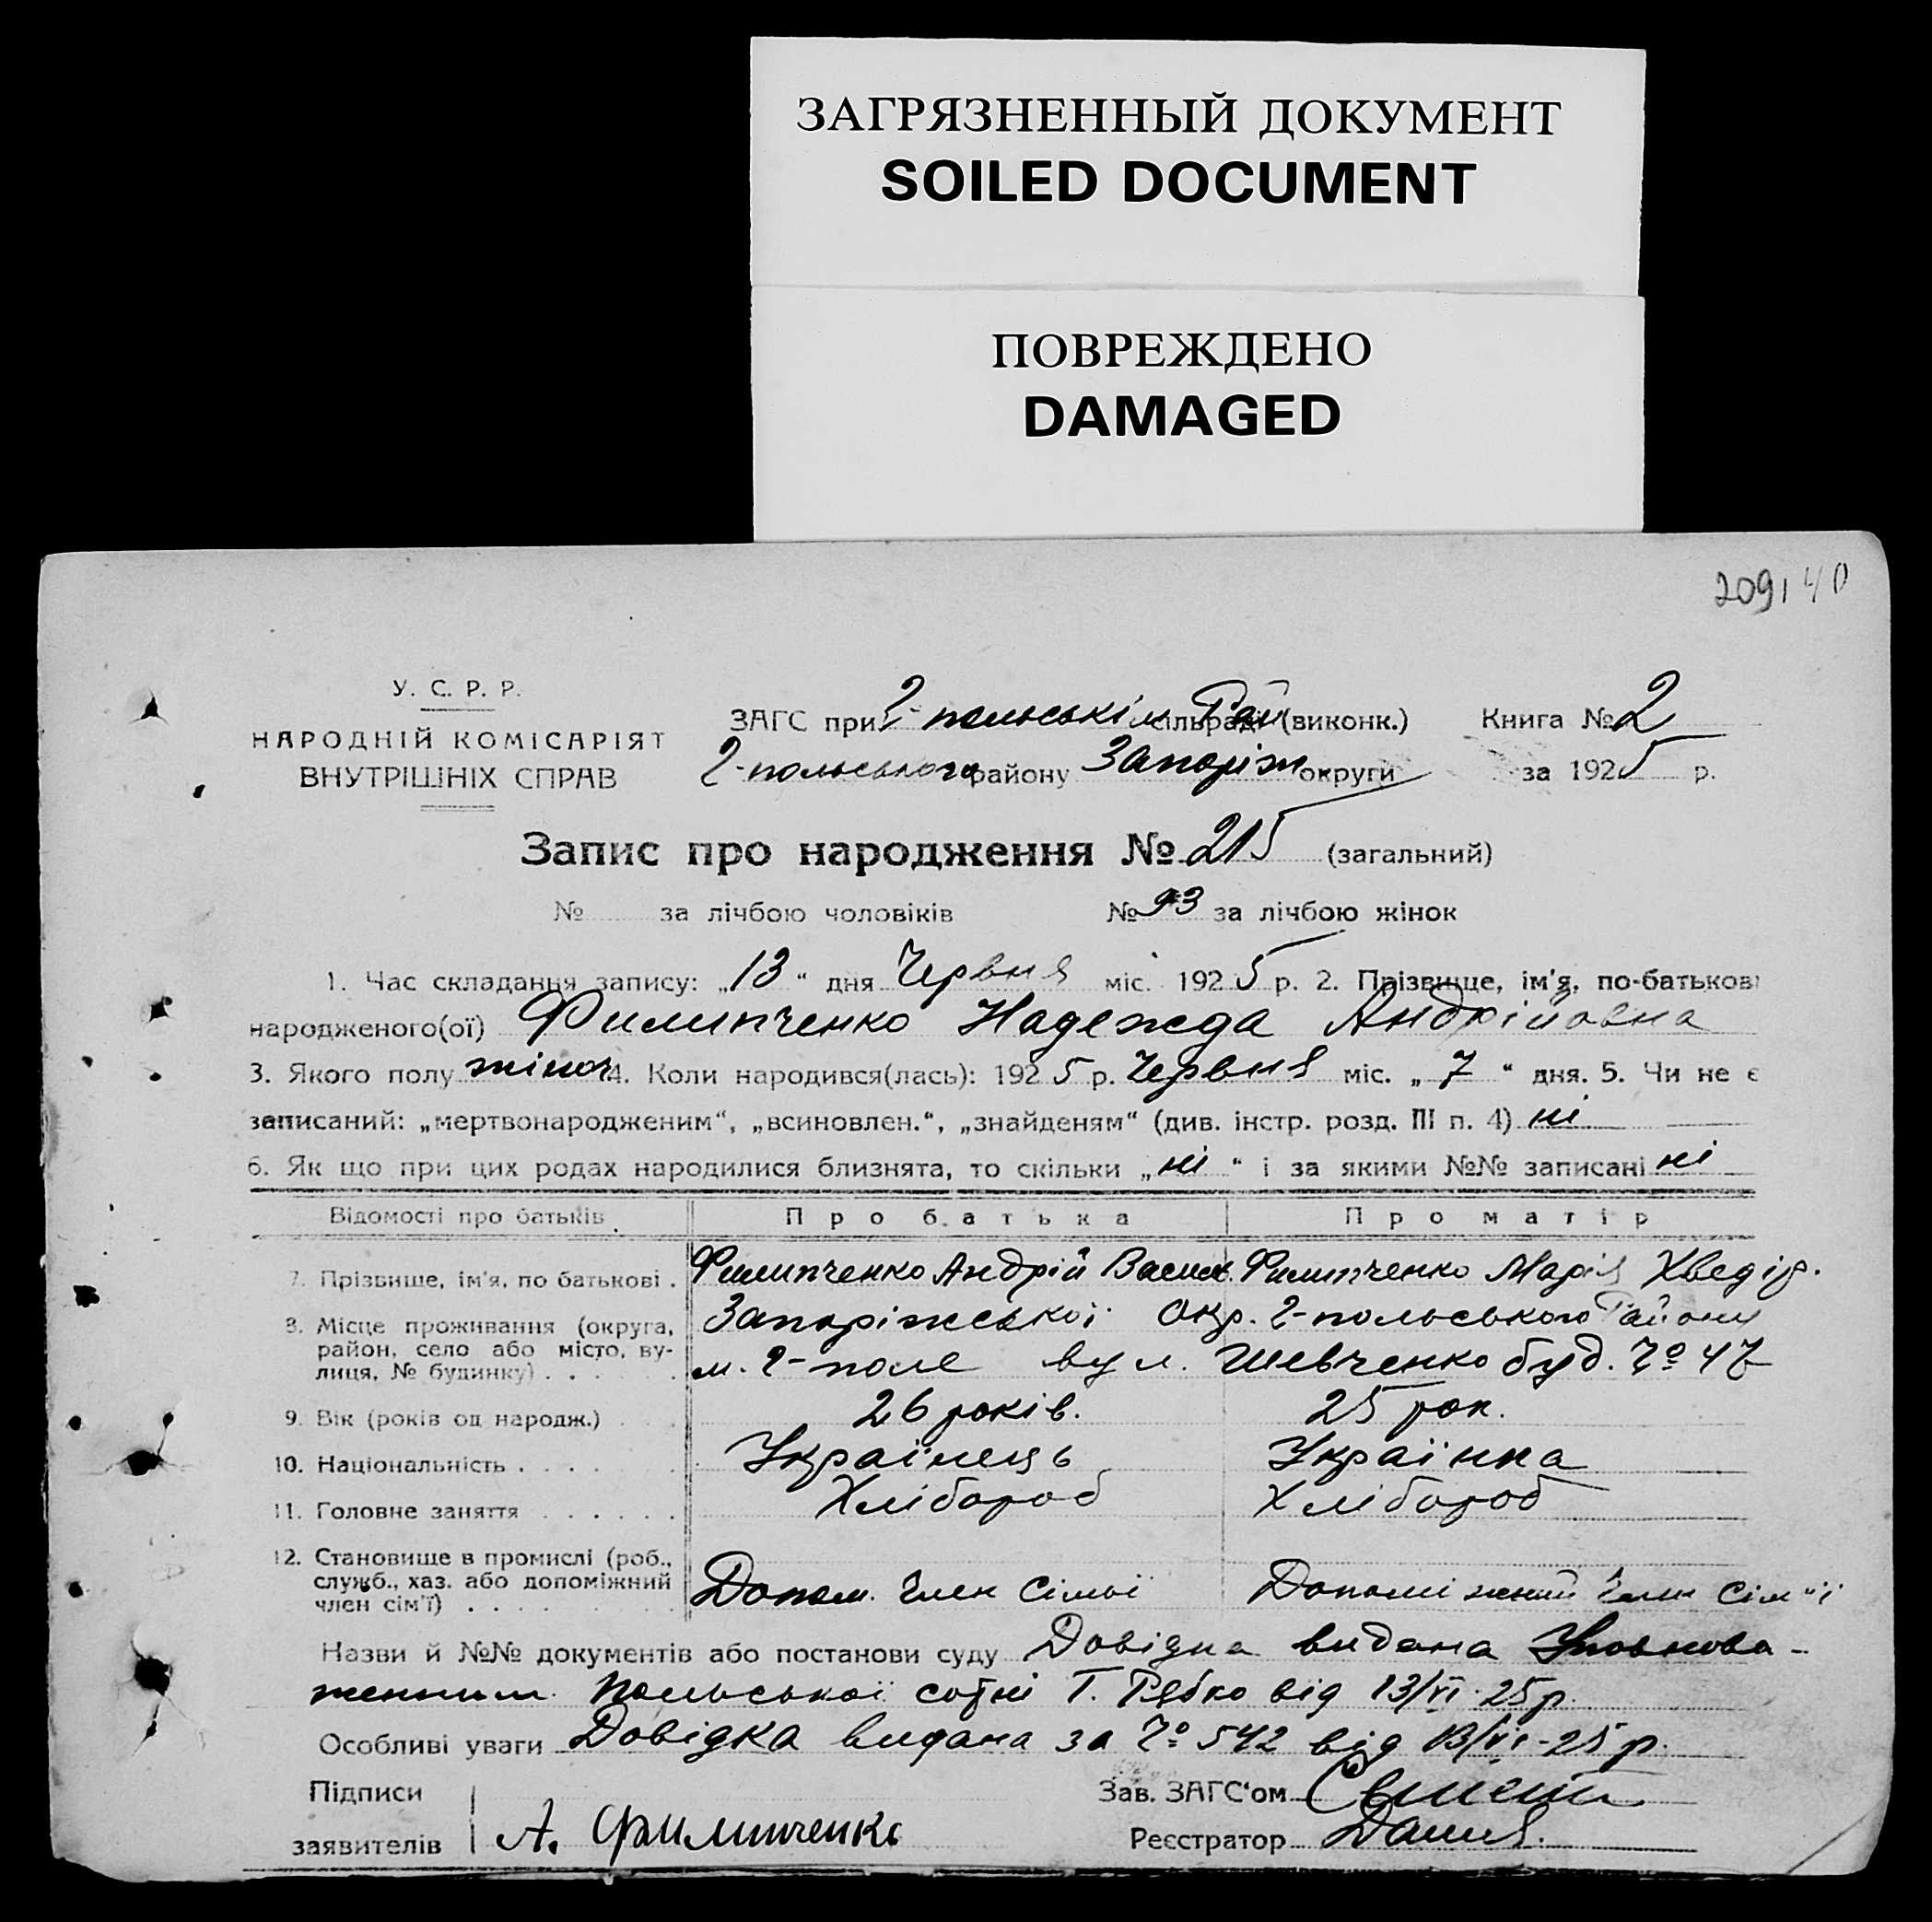 ЗАГРЯЗНЕННЫЙ ДОКУМЕНТ
SOILED DOCUMENT
ПОВРЕЖДЕНО
DAMAGED
209 40
У. С. Р. Р.
НАРОДНІЙ КОМІСАРІЯТ
ВНУТРІШНІХ СПРАВ
ЗАГС при Г-польскім Рай сільраді (виконк.) Книга № 2
Г-польського району Запоріж округи за 1925 р.
Запис про народження № 215 (загальний)
№ за лічбою чоловіків № 93 за лічбою жінок
1. Час складання запису: „13“ дня Червня міс. 1925 р. 2. Прізвище, ім'я, по-батькові
народженого(ої) Филипченко Надежда Андрійовна
3. Якого полу жіноч 4. Коли народився(лась): 1925 р. Червня міс. „7“ дня. 5. Чи не є
записаний: „мертвонародженим“, „всиновлен.“, „знайденям“ (див. інстр. розд. III п. 4) ні
6. Як що при цих родах народилися близнята, то скільки „ні“ і за якими №№ записані ні
Відомості про батьків Про батька Про матір
7. Прізвище, ім'я, по батькові . Филипченко Андрій Васил. Филипченко Марія Хведір.
8. Місце проживання (округа, район, село або місто, вулиця, № будинку) . . . Запоріжської Окр. Г-польського Району
м. Г-поле вул. Шевченко буд. № 47
9. Вік (років од народж.) . . 26 років. 25 рок.
10. Національність . . . . Українець Українка
11. Головне заняття . . . . . . Хлібороб Хлібороб
12. Становище в промислі (роб., служб., хаз. або допоміжний член сім'ї) . . . . Допом. член сімьї Допоміжний член сім"ї
Назви й №№ документів або постанови суду Довідка видана Уповнова-
женним Польської сотні Т. Рябко від 13/VI-25 р.
Особливі уваги Довідка видана за № 542 від 13/VI-25 р.
Підписи Зав. ЗАГС'ом
заявителів А. Филипченко Реєстратор